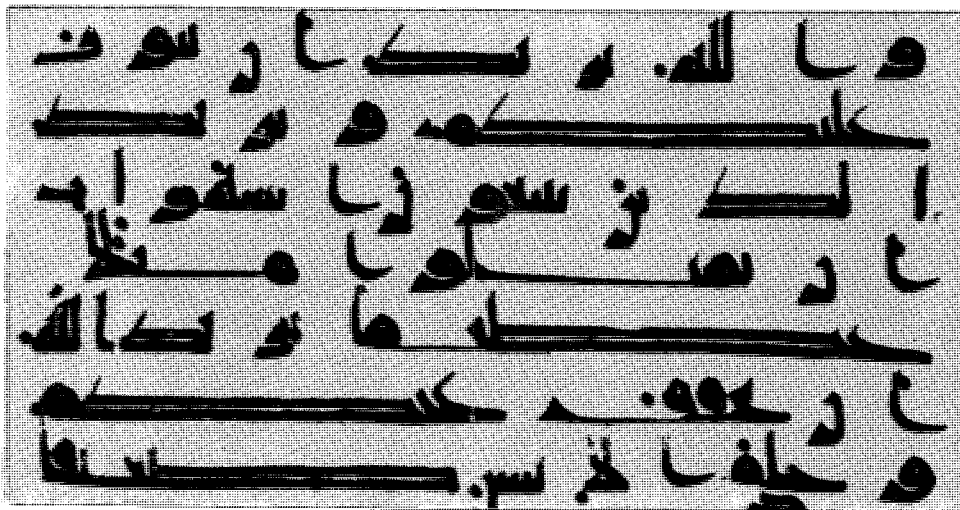 والله يريد ان يتوب
عليكم ويريد
الذين يتبعون الشهوت
ان تميلوا ميلا
عظيما يريد الله
ان يخفف عنكم
وخلق الانسن ضعيفا